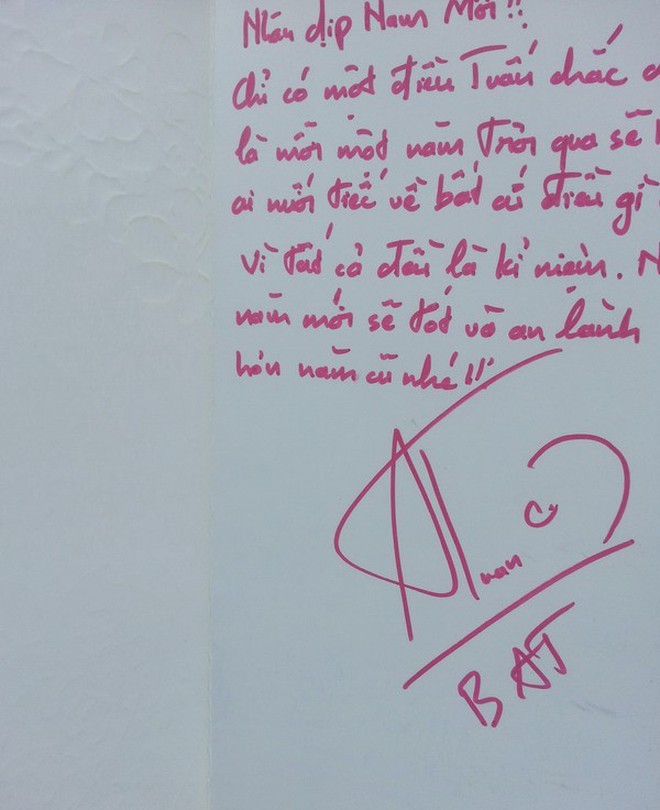 Nhân dịp Năm Mới!!
Chỉ có một điều Tuấn chắc
là mỗi một năm trôi qua sẽ
ai nuối tiếc về bất cứ điều gì
vì tất cả đều là kỉ niệm. N
năm mới sẽ tốt và an lành
hơn năm cũ nhé!!
uan
BAT